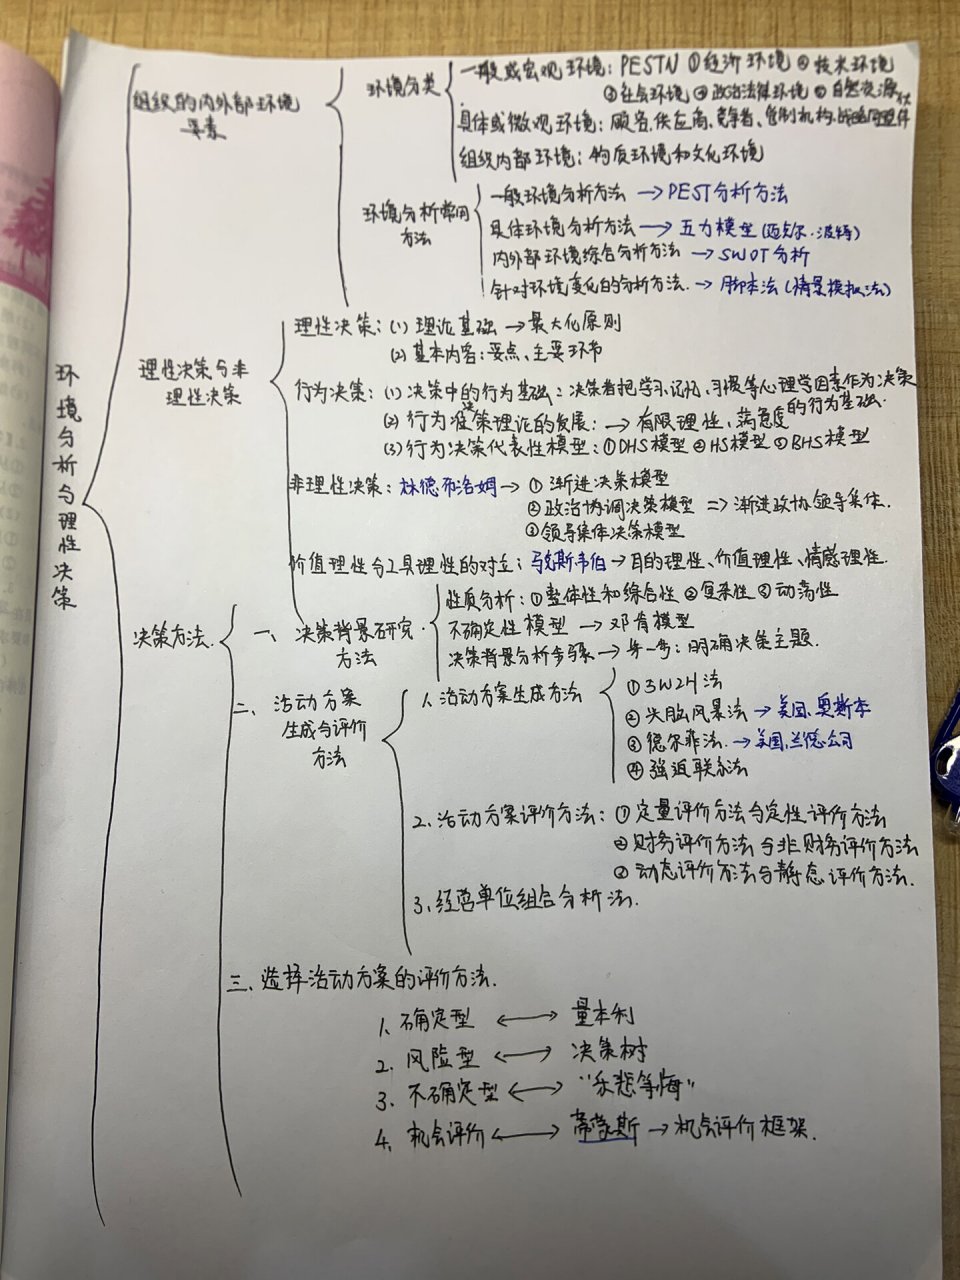 环境分析与理性决策
组织的内外部环境
要素
环境分类
一般或宏观环境：PESTN ①经济环境 ②技术环境
③社会环境 ④政治法律环境 ⑤自然资源
具体或微观环境：顾客、供应商、竞争者、管制机构、战略同盟伙伴
组织内部环境：物质环境和文化环境
环境分析常用
方法
一般环境分析方法 → PEST分析方法
具体环境分析方法 → 五力模型(迈克尔·波特)
内外部环境综合分析方法 → SWOT分析
针对环境变化的分析方法. → 脚本法(情景模拟法)
理性决策与非
理性决策
理性决策：(1) 理论基础 → 最大化原则
(2) 基本内容：要点、主要环节
行为决策：(1) 决策中的行为基础：决策者把学习、记忆、习惯等心理学因素作为决策
的行为基础.
(2) 行为决策理论的发展：→ 有限理性、满意度
(3) 行为决策代表性模型：①DHS模型 ②HS模型 ③BHS模型
非理性决策：林德布洛姆 → ① 渐进决策模型
②政治协调决策模型 => 渐进政协领导集体.
③领导集体决策模型
价值理性与工具理性的对立：马克斯韦伯 → 目的理性、价值理性、情感理性.
决策方法.
一、决策背景研究
方法
性质分析：①整体性和综合性 ②复杂性 ③动荡性
不确定性模型 → 邓肯模型
决策背景分析步骤 → 第一步：明确决策主题.
二、活动方案
生成与评价
方法
1. 活动方案生成方法
①5W2H法
②头脑风暴法 → 美国.奥斯本
③德尔菲法. → 美国.兰德公司
④强迫联系法
2、活动方案评价方法：①定量评价方法与定性评价方法
②财务评价方法与非财务评价方法
③动态评价方法与静态评价方法.
3、经营单位组合分析法.
三、选择活动方案的评价方法.
1、确定型 ↔ 量本利
2. 风险型 ↔ 决策树
3. 不确定型 ↔ “乐悲等悔”
4. 机会评价 ↔ 蒂蒙斯 → 机会评价框架.